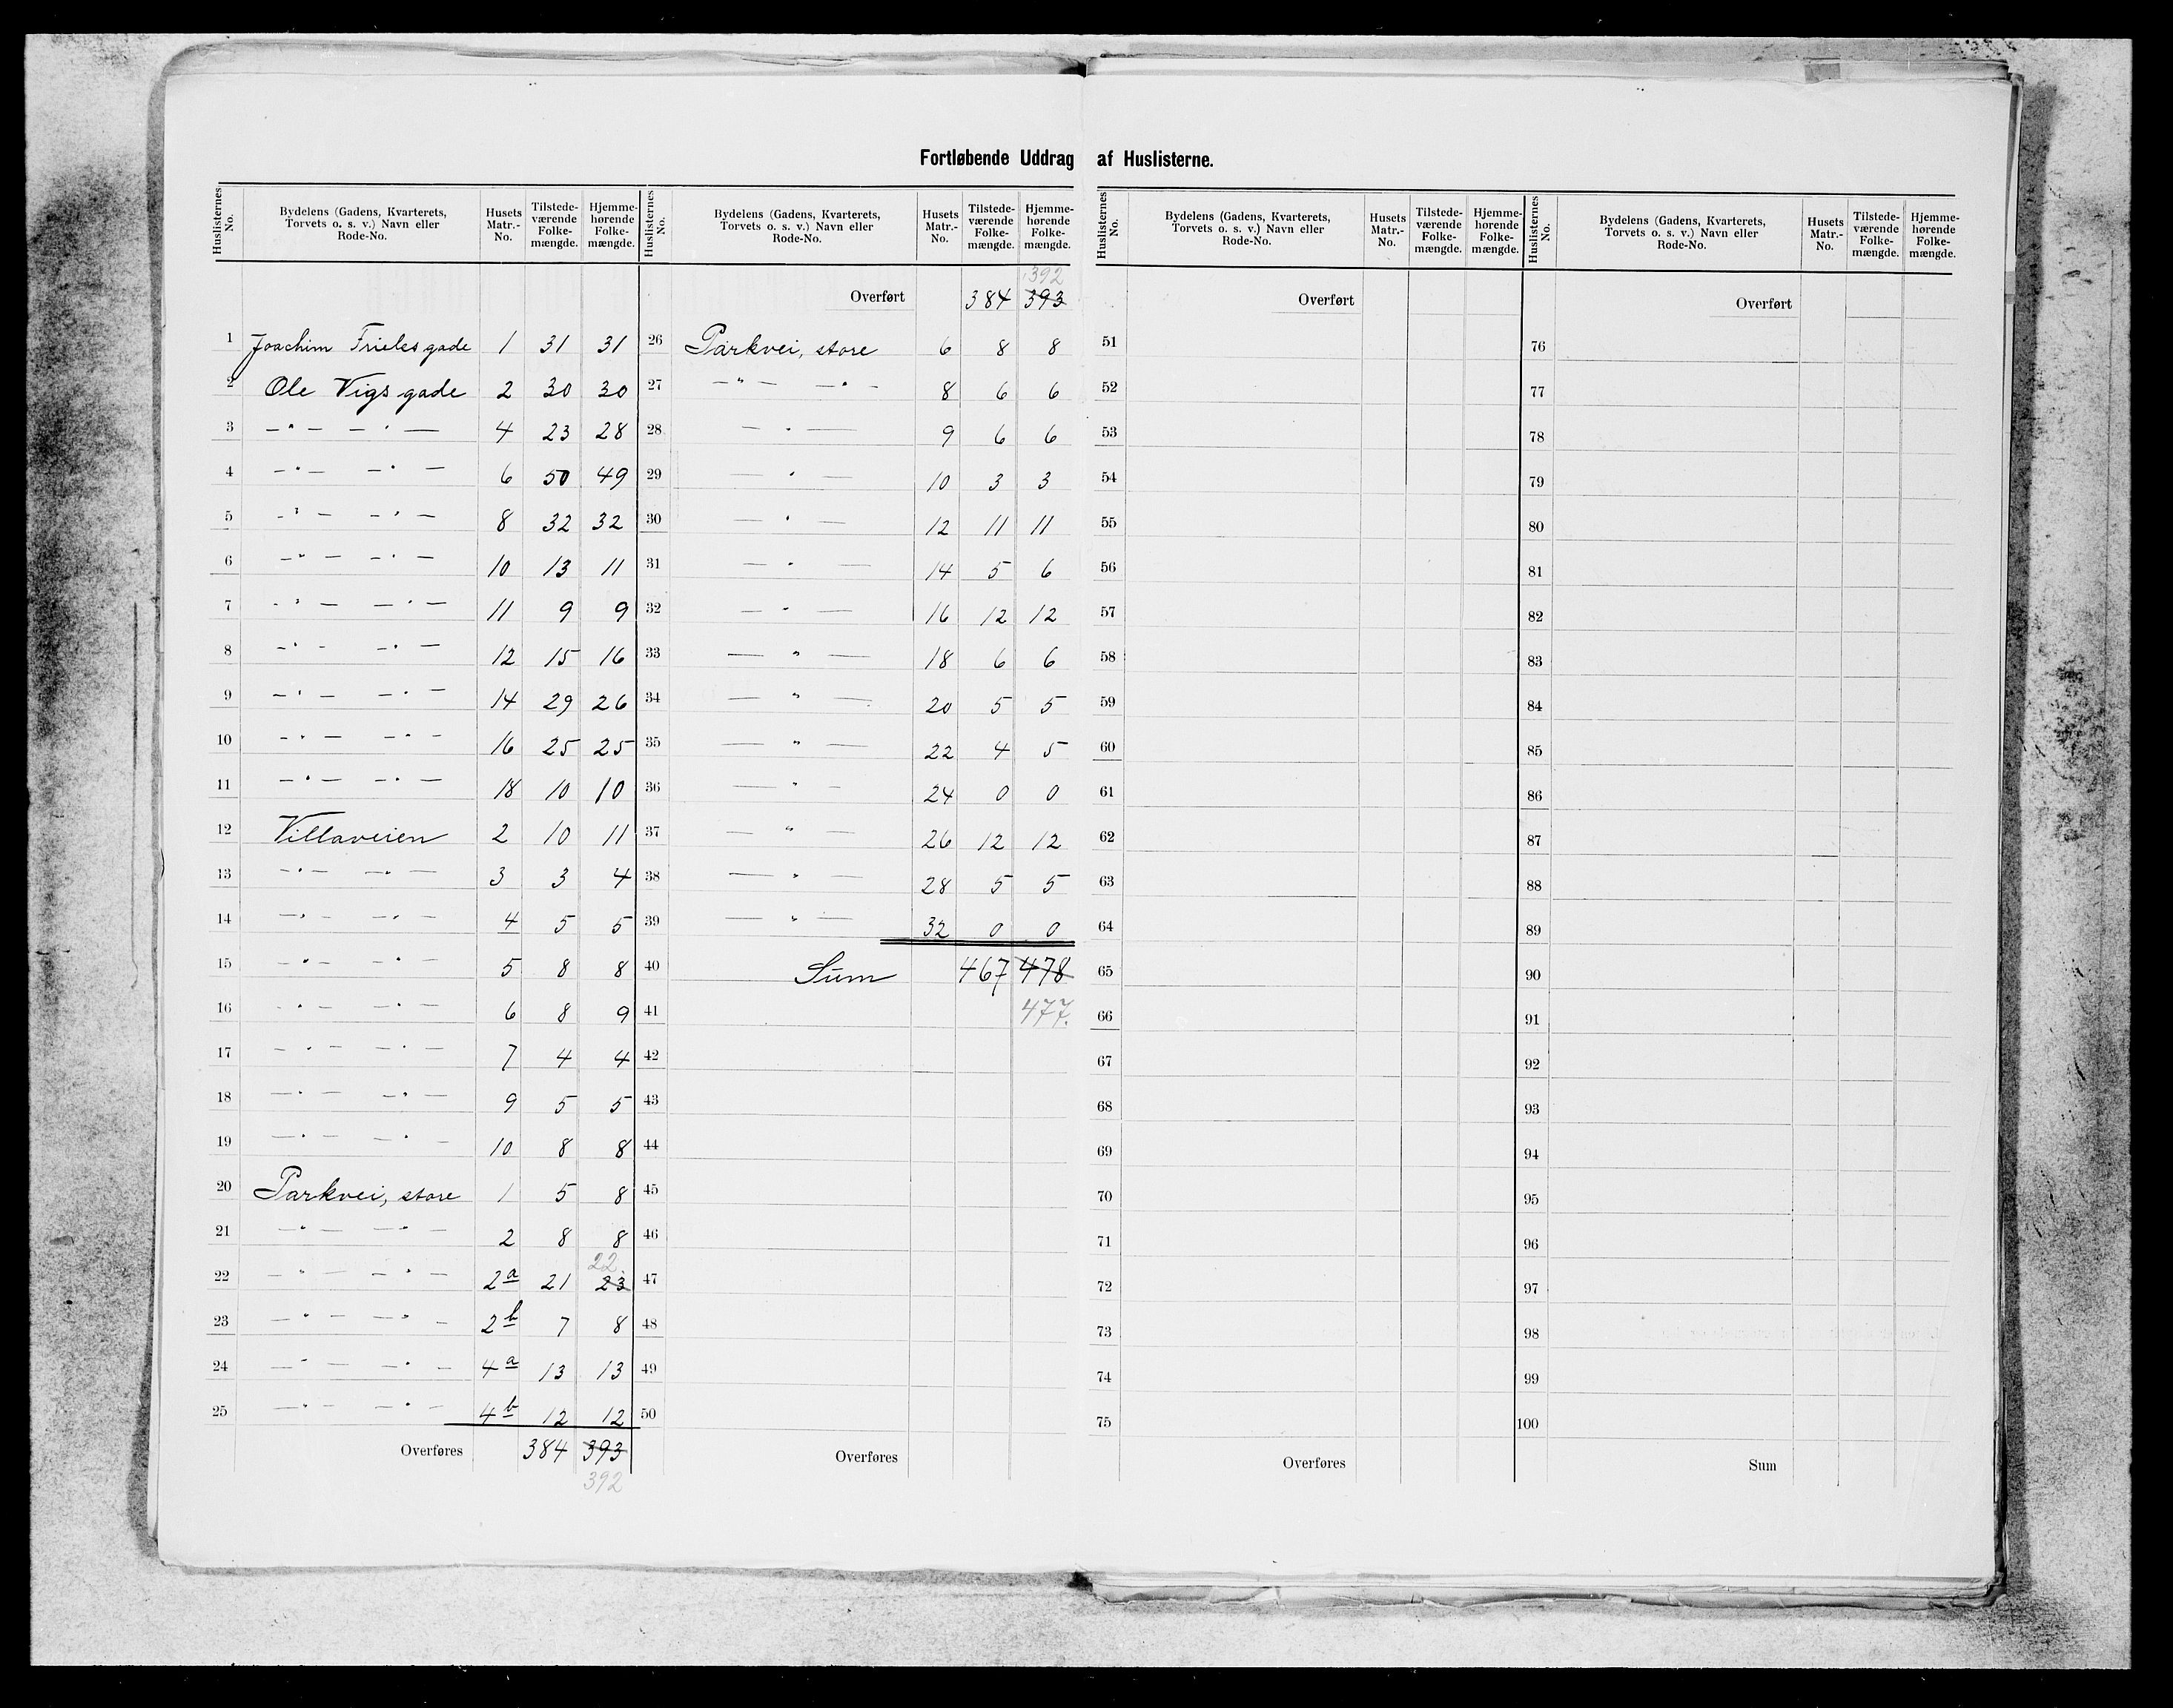 Fortløbende Uddrag af Huslisterne.
Huslisternes No. | Bydelens (Gadens, Kvarterets, Torvets o. s. v.) Navn eller Rode-No. | Husets Matr.-No. | Tilstede-værende Folke-mængde. | Hjemme-hørende Folke-mængde.
1 Joachim Frieles gade 1 31 31
2 Ole Vigs gade 2 30 30
3 — " — — " — 4 23 28
4 — " — — " — 6 50 49
5 — " — — " — 8 32 32
6 — " — — " — 10 13 11
7 — " — — " — 11 9 9
8 — " — — " — 12 15 16
9 — " — — " — 14 29 26
10 — " — — " — 16 25 25
11 — " — — " — 18 10 10
12 Villaveien 2 10 11
13 — " — — " — 3 3 4
14 — " — — " — 4 5 5
15 — " — — " — 5 8 8
16 — " — — " — 6 8 9
17 — " — — " — 7 4 4
18 — " — — " — 9 5 5
19 — " — — " — 10 8 8
20 Parkvei, store 1 5 8
21 — " — — " — 2 8 8
22 — " — — " — 2a 21 23 22
23 — " — — " — 2b 7 8
24 — " — — " — 4a 13 13
25 — " — — " — 4b 12 12
Overføres 384 393
392
Huslisternes No. | Bydelens (Gadens, Kvarterets, Torvets o. s. v.) Navn eller Rode-No. | Husets Matr.-No. | Tilstede-værende Folke-mængde. | Hjemme-hørende Folke-mængde.
392
Overført 384 393
26 Parkvei, store 6 8 8
27 — " — — " — 8 6 6
28 — " — 9 6 6
29 — " — 10 3 3
30 — " — 12 11 11
31 — " — 14 5 6
32 — " — 16 12 12
33 — " — 18 6 6
34 — " — 20 5 5
35 — " — 22 4 5
36 — " — 24 0 0
37 — " — 26 12 12
38 — " — 28 5 5
39 — " — 32 0 0
40 Sum 467 478
41 477.
42
43
44
45
46
47
48
49
50
Overføres
Huslisternes No. | Bydelens (Gadens, Kvarterets, Torvets o. s. v.) Navn eller Rode-No. | Husets Matr.-No. | Tilstede-værende Folke-mængde. | Hjemme-hørende Folke-mængde.
Overført
51
52
53
54
55
56
57
58
59
60
61
62
63
64
65
66
67
68
69
70
71
72
73
74
75
Overføres
Huslisternes No. | Bydelens (Gadens, Kvarterets, Torvets o. s. v.) Navn eller Rode-No. | Husets Matr.-No. | Tilstede-værende Folke-mængde. | Hjemme-hørende Folke-mængde.
Overført
76
77
78
79
80
81
82
83
84
85
86
87
88
89
90
91
92
93
94
95
96
97
98
99
100
Sum